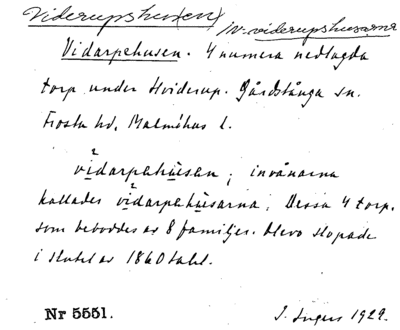 Viderupshusen
/v. viderupshusarna
Vidarpahusen. 4 numera nedlagda
torp under Hviderup. Gårdstånga sn.
Frosta hd, Malmöhus l.
vidarpahusan; invånarna
kallades vidarpahusarna. Dessa 4 torp.
som beboddes av 8 familjer. blevo slopade
i slutet av 1860 talet.
Nr 5551.
J. Ingers 1929.